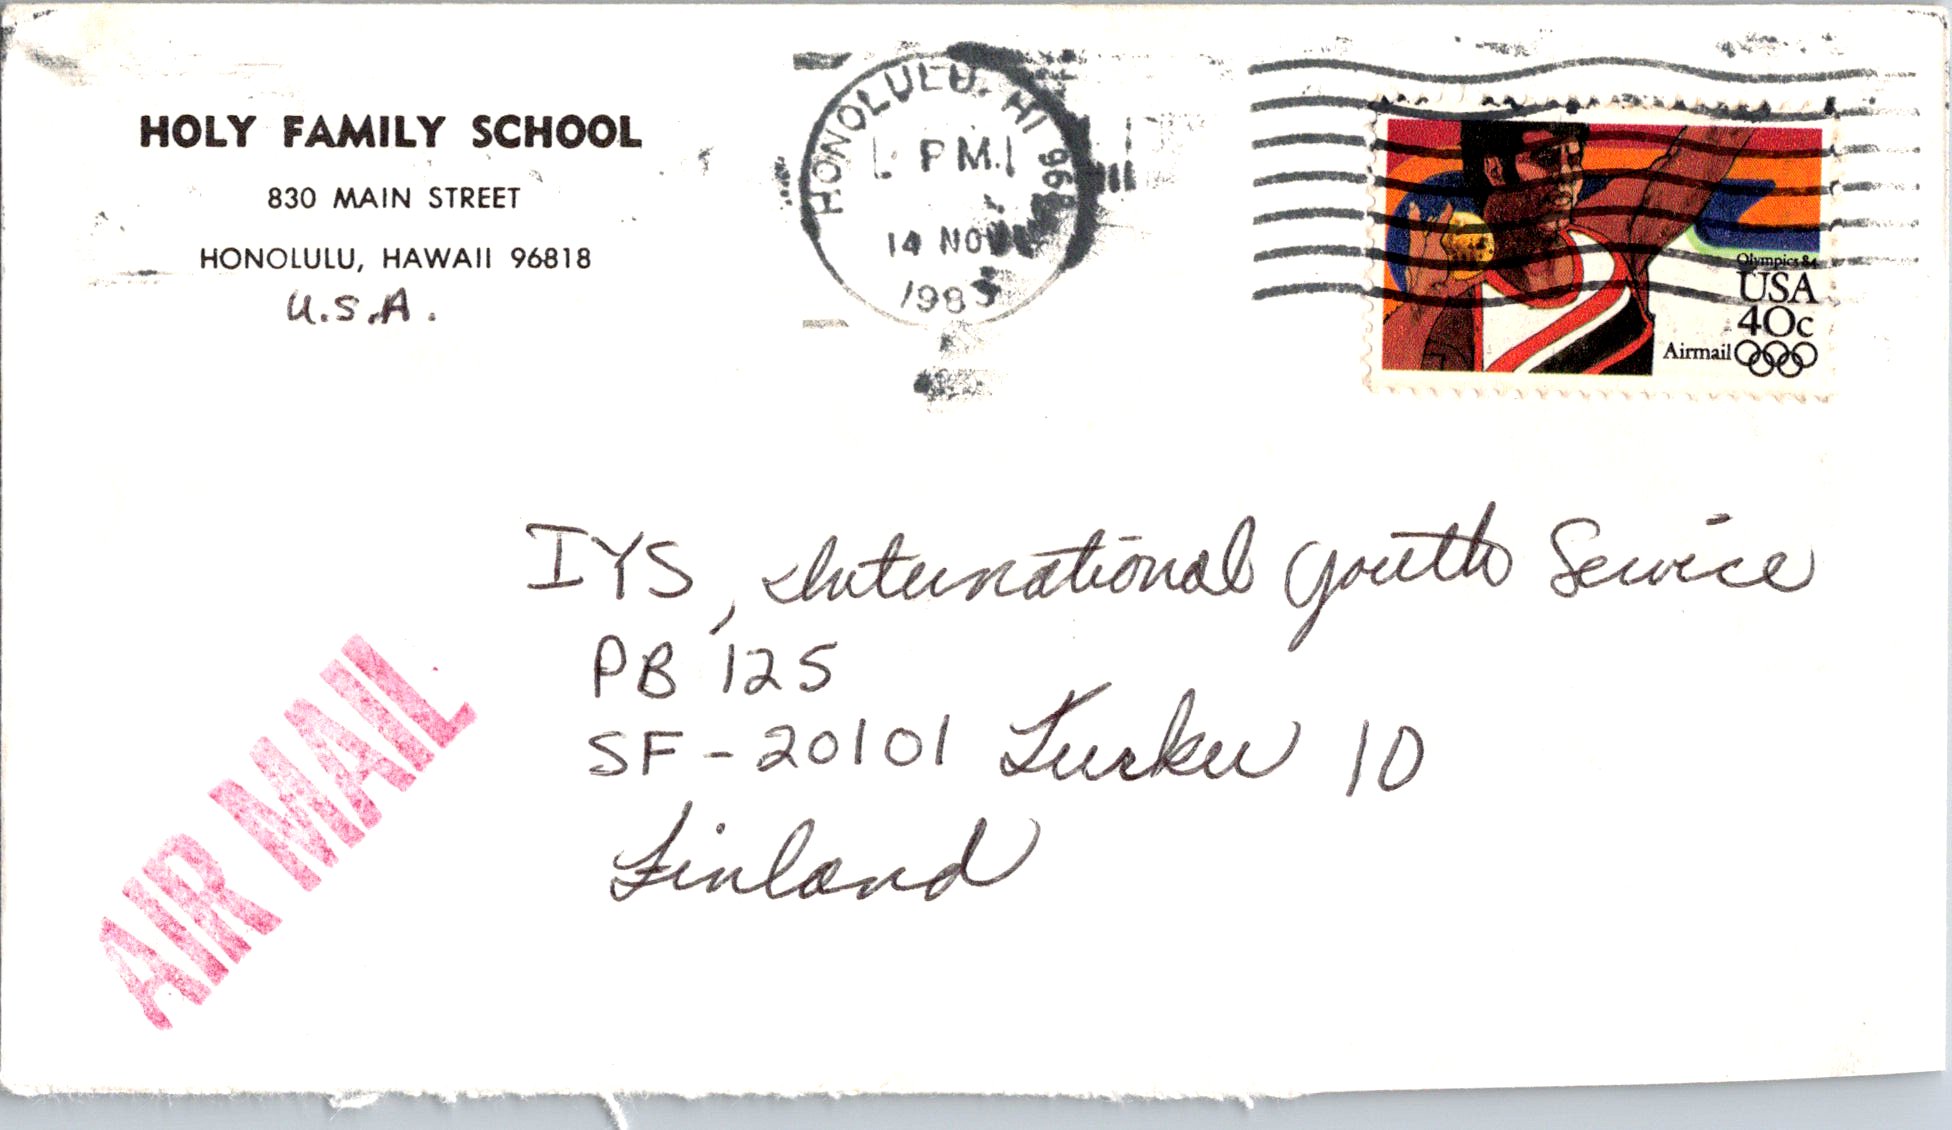 HOLY FAMILY SCHOOL
830 MAIN STREET
HONOLULU, HAWAII 96818
U.S.A.
HONOLULU, HI 968
PM
14 NOV
1983
Olympics 84
USA
40c
Airmail
IYS, International Youth Service
PB 125
SF-20101 Turku 10
Finland
AIR MAIL